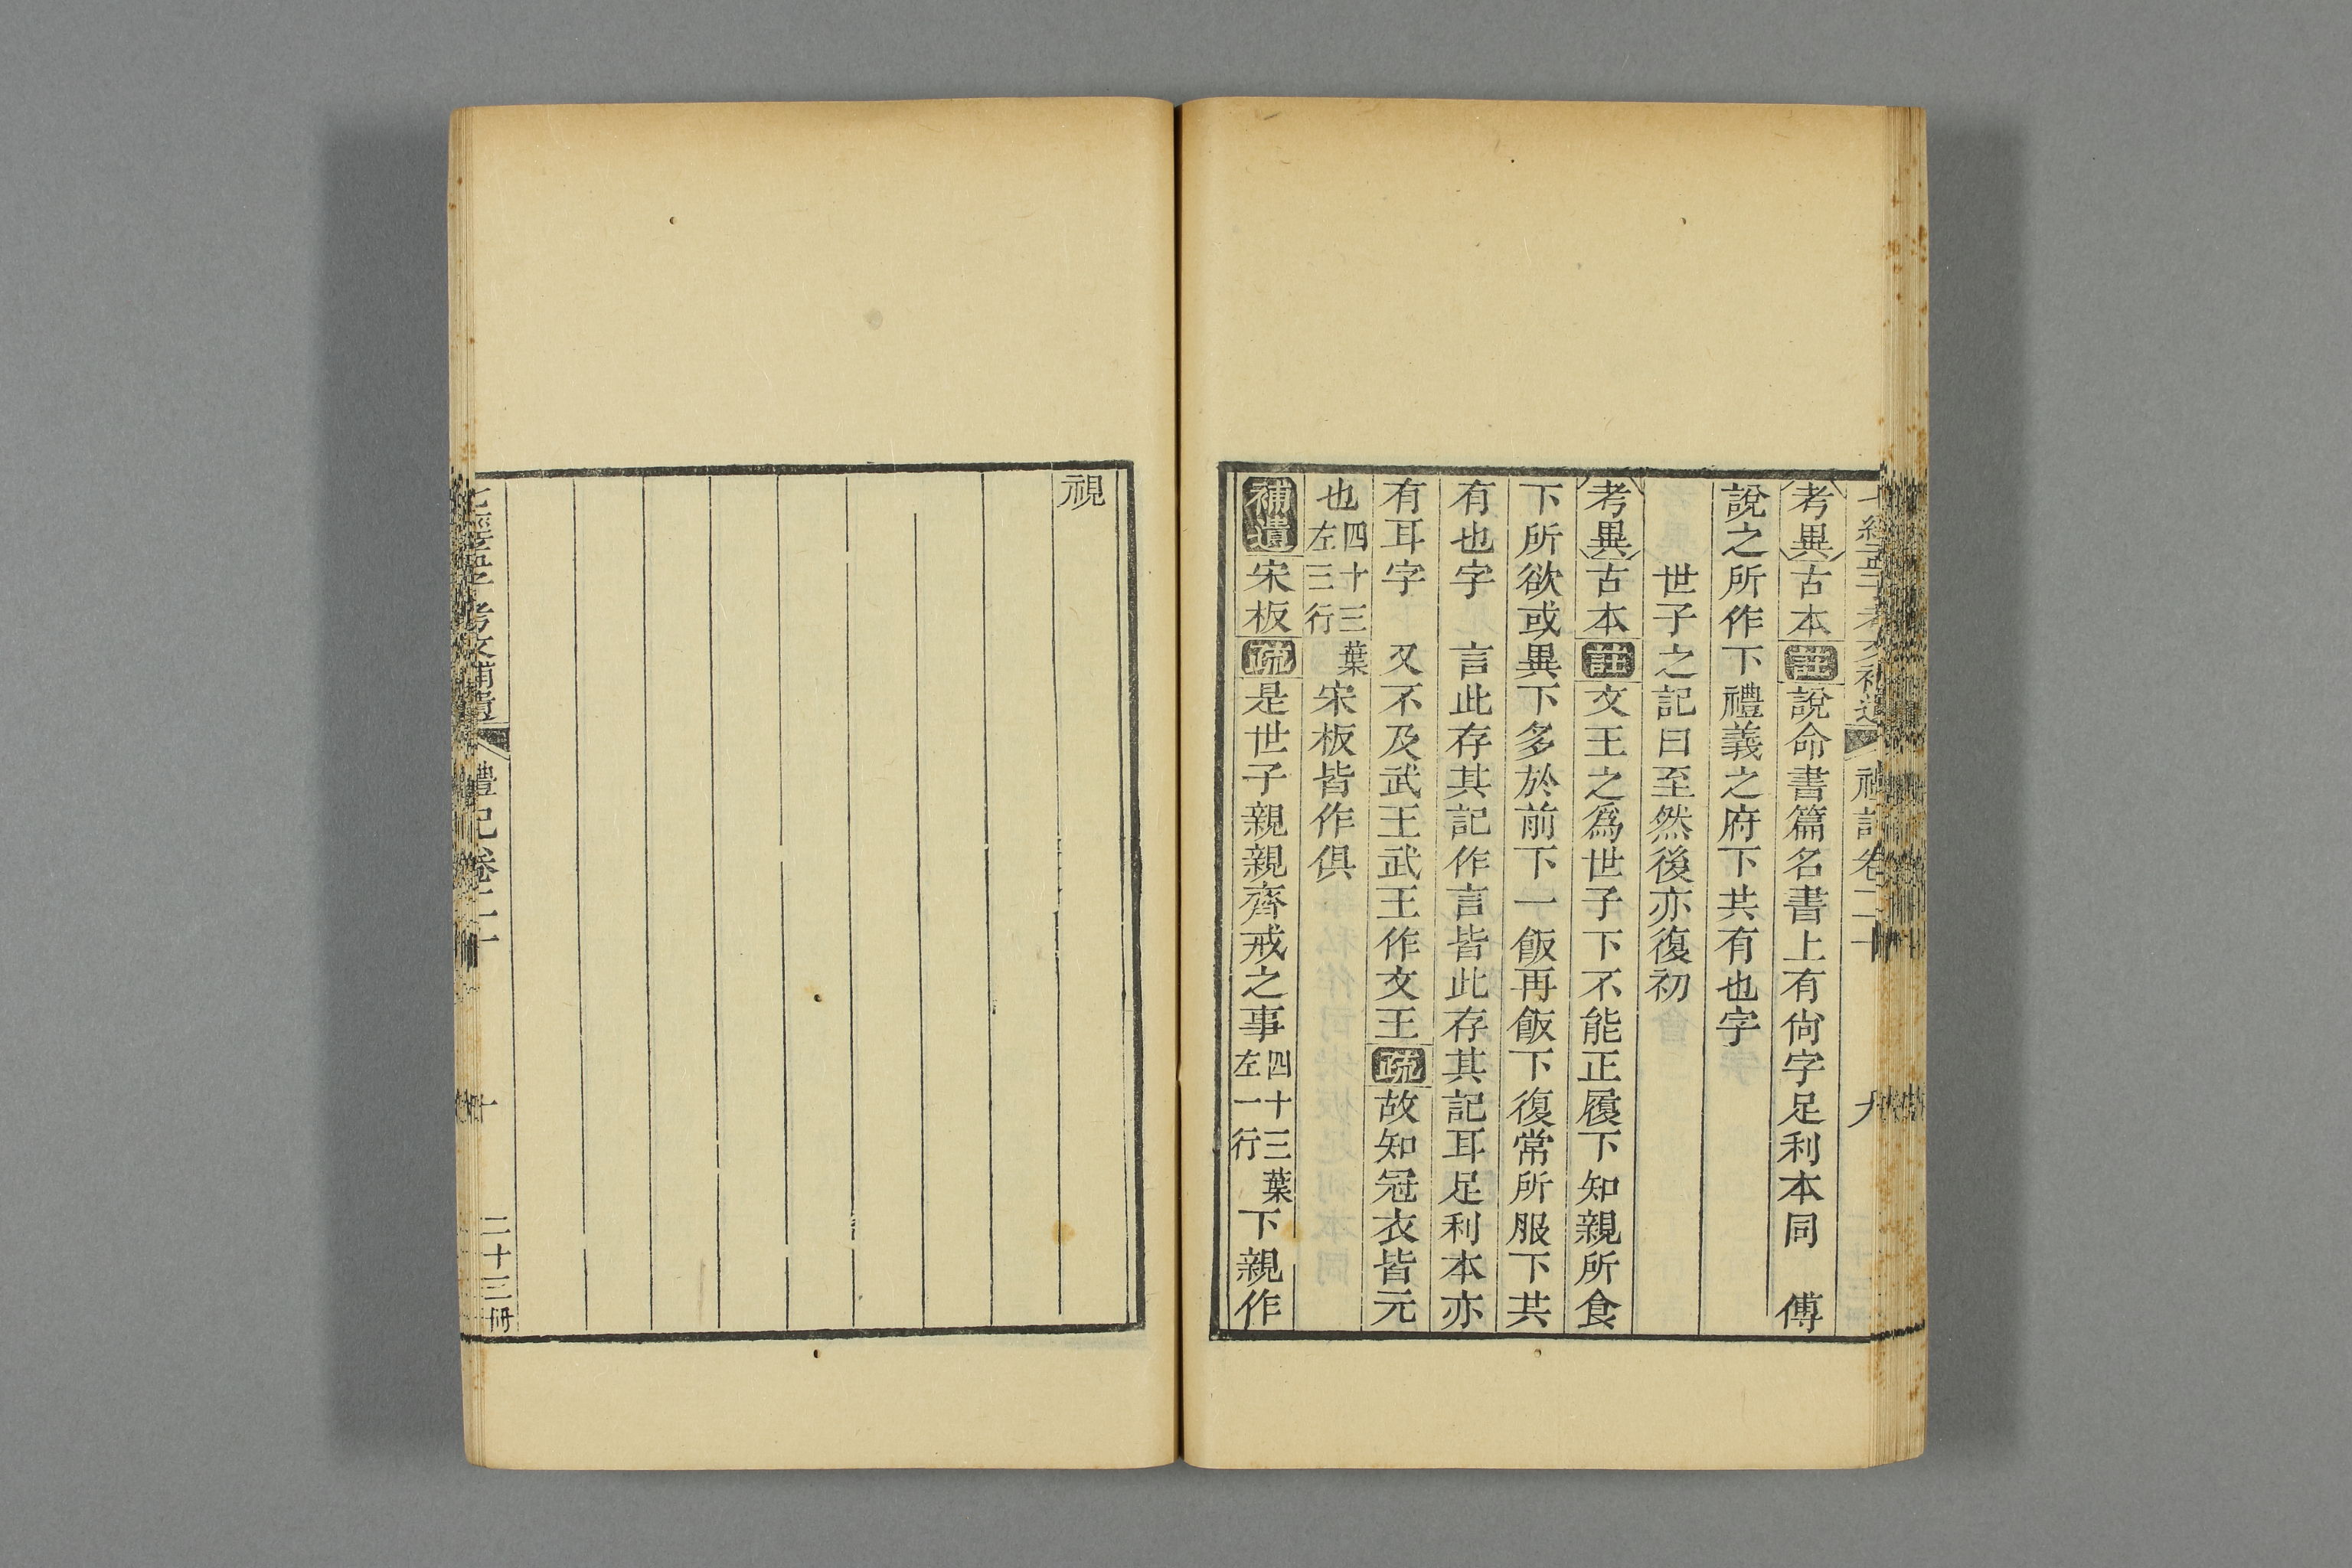 考異古本註說命書篇名書上有尙字足利本同　傅
說之所作下禮義之府下共有也字
世子之記曰至然後亦復初
考異古本註文王之爲世子下不能正履下知親所食
下所欲或異下多於前下一飯再飯下復常所服下共
有也字　言此存其記作言皆此存其記耳足利本亦
有耳字　又不及武王武王作文王疏故知冠衣皆元
也四十三葉左三行宋板皆作俱
補遺宋板疏是世子親親齊戒之事四十三葉左一行下親作
視
七經孟子考文補遺　禮記卷二十　十　二十三冊